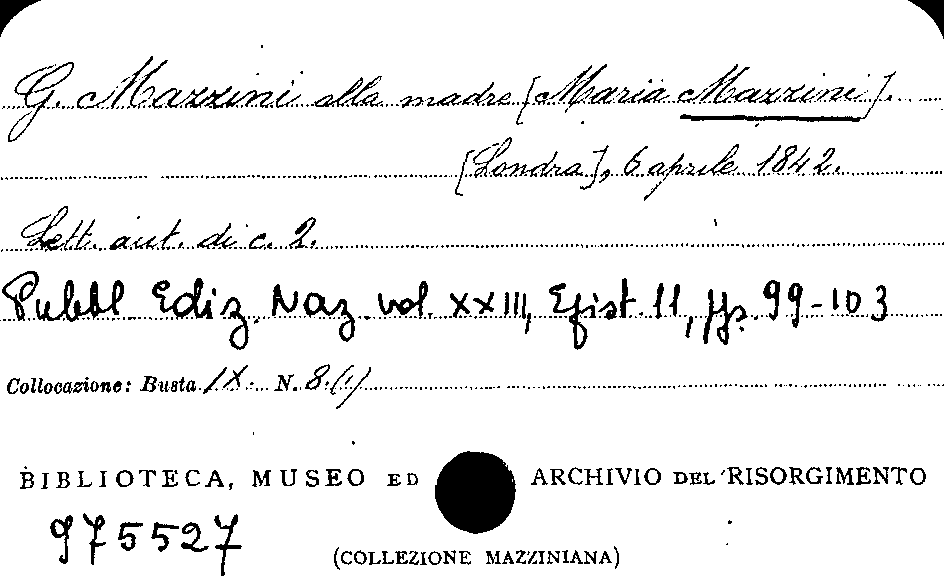 G. Mazzini alla madre [Maria Mazzini].
[Londra], 6 aprile 1842.
Lett. aut. di c. 2.
Pubbl. Ediz. Naz. vol. XXIII, Epist. 11, pp. 99-103
Collocazione: Busta IX. N. 8.(1)
BIBLIOTECA, MUSEO ED ARCHIVIO DEL RISORGIMENTO
975527
(COLLEZIONE MAZZINIANA)